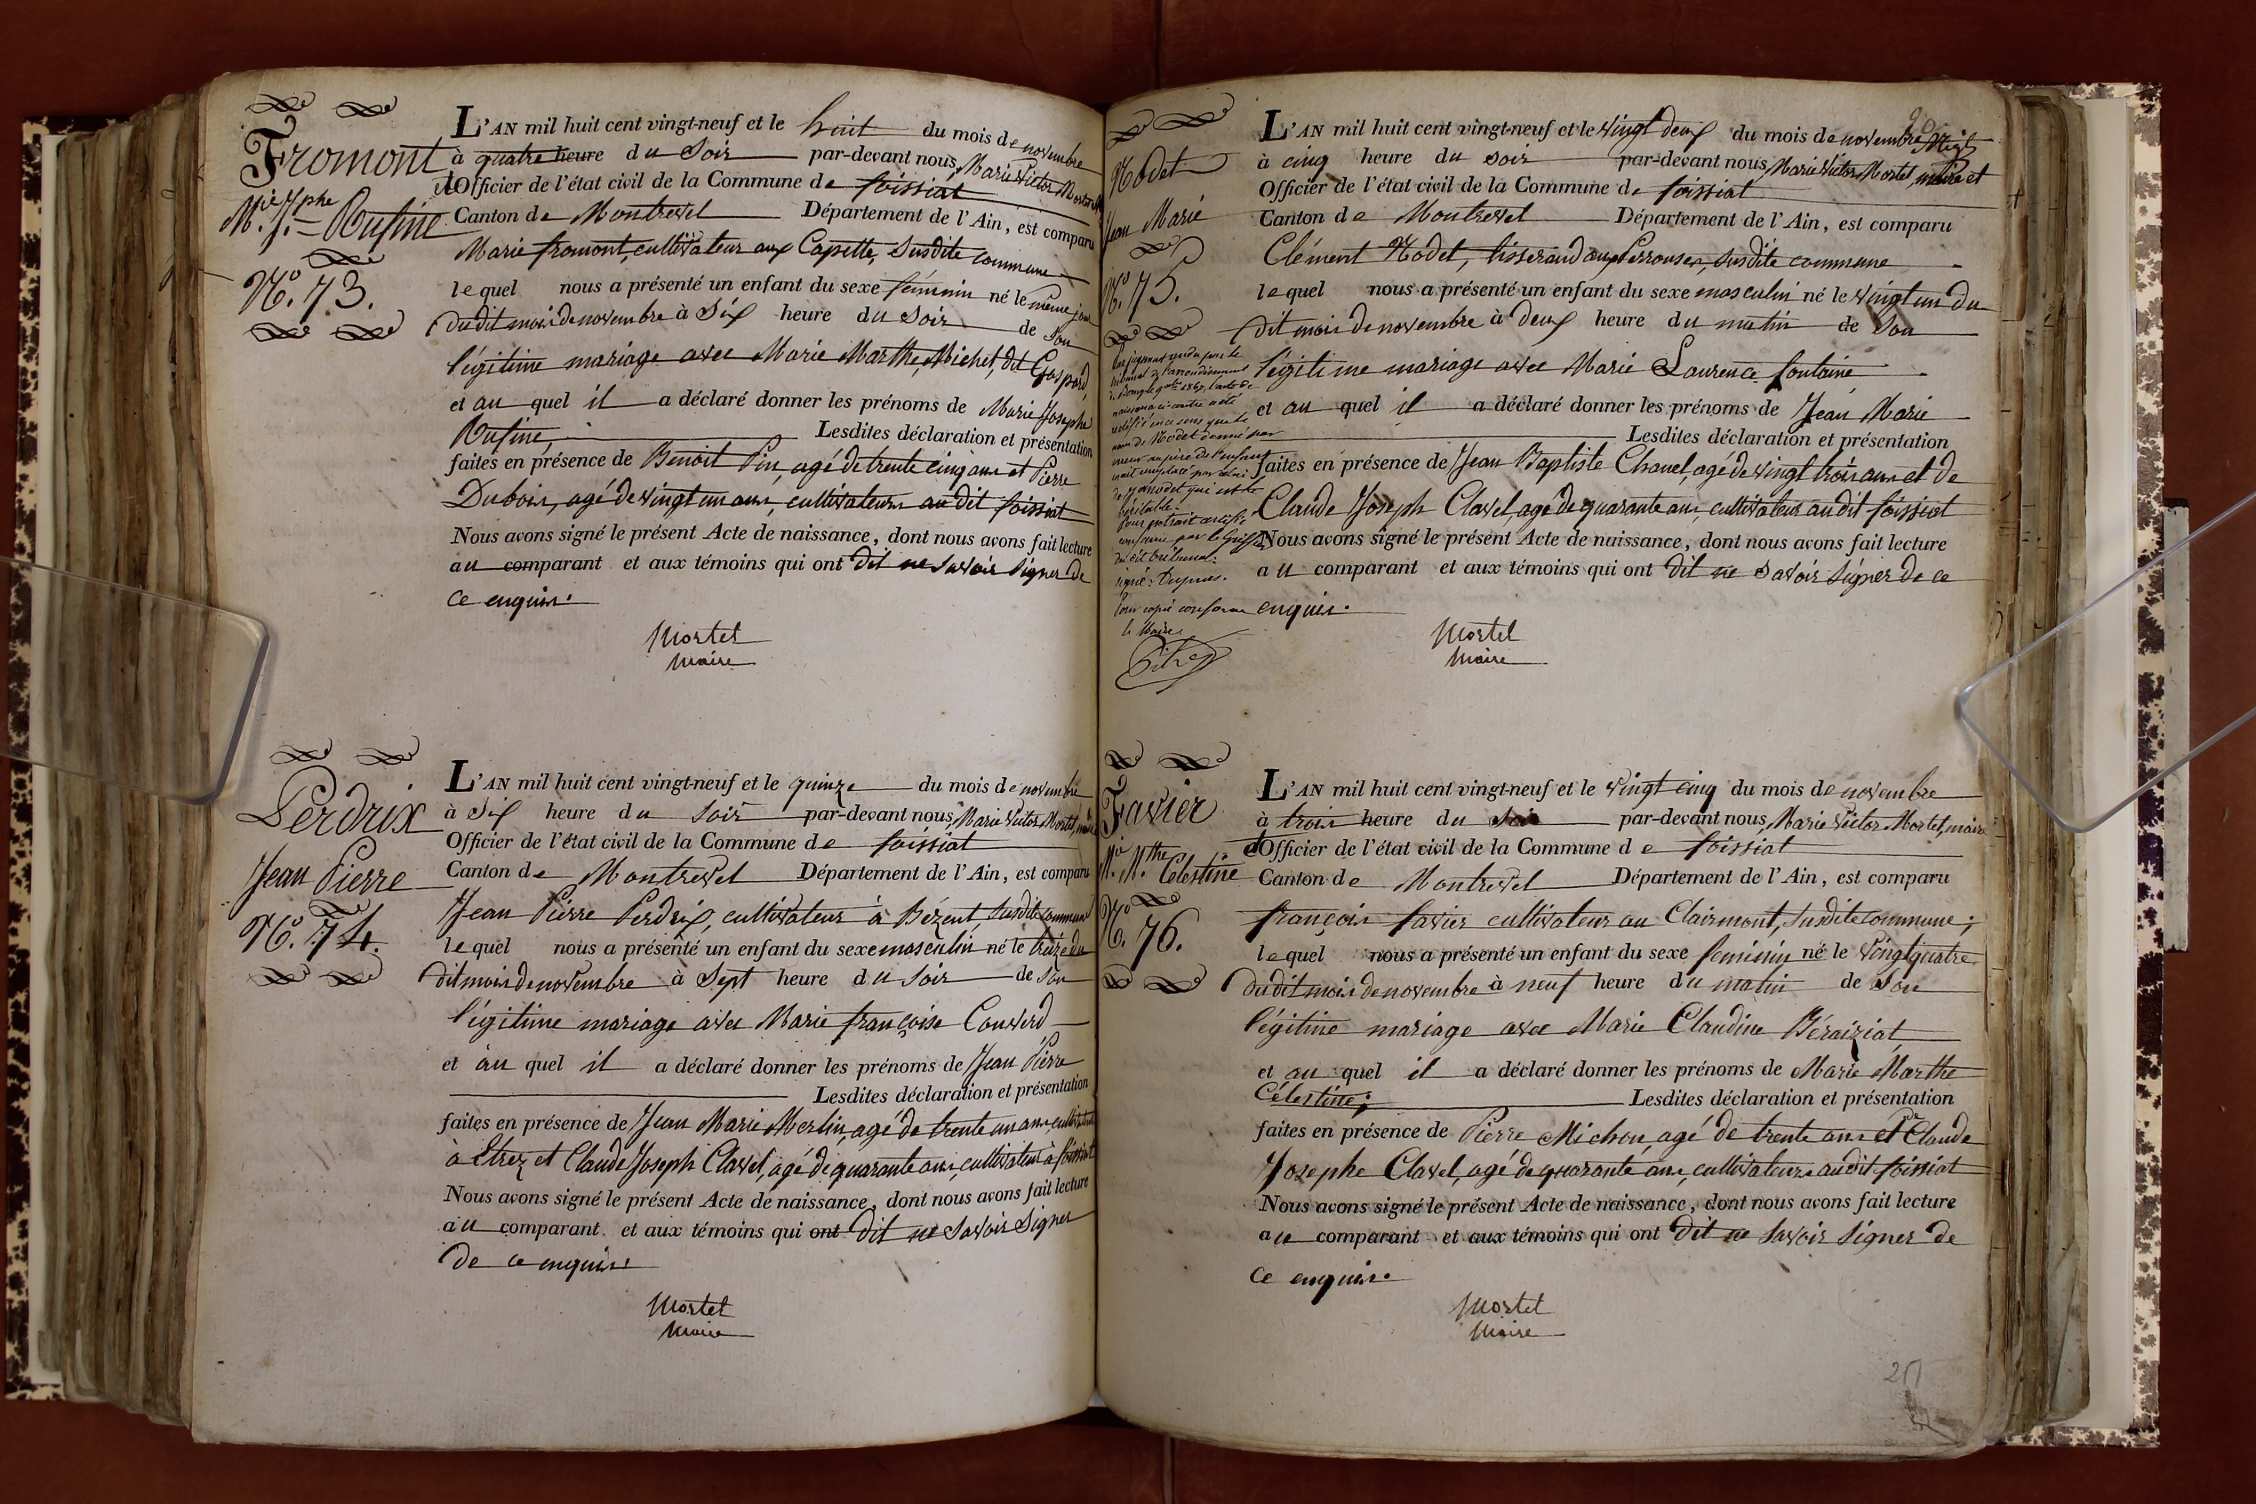 Fromont
M.ie J.phe Rufine
N.o 73.
L'AN mil huit cent vingt-neuf et le huit du mois de novembre
à quatre heure du soir par-devant nous, Marie Victor Mortel
Officier de l'état civil de la Commune de foissiat
Canton de Montrevel Département de l'Ain, est comparu
Marie fromont, cultivateur aux Capette, susdite commune
lequel nous a présenté un enfant du sexe féminin né le même jour
dudit mois de novembre à six heure du soir de son
légitime mariage avec Marie Marthe Michel, dit Gaspard,
et au quel il a déclaré donner les prénoms de Marie Josephe
Rufine, Lesdites déclaration et présentation
faites en présence de Benoit Pin, agé de trente cinq ans et Pierre
Dubois, agé de vingt un ans, cultivateurs au dit foissiat
Nous avons signé le présent Acte de naissance, dont nous avons fait lecture
au comparant et aux témoins qui ont dit ne savoir signer de
ce enquis.
Mortel
Maire
Perdrix
Jean Pierre
N.o 74.
L'AN mil huit cent vingt-neuf et le quinze du mois de novembre
à six heure du soir par-devant nous, Marie Victor Mortel, maire
Officier de l'état civil de la Commune de foissiat
Canton de Montrevel Département de l'Ain, est comparu
Jean Pierre Perdrix, cultivateur à Bézent, susdite commune
lequel nous a présenté un enfant du sexe masculin né le treize du
dit mois de novembre à sept heure du soir de son
légitime mariage avec Marie françoise Convert
et au quel il a déclaré donner les prénoms de Jean Pierre
Lesdites déclaration et présentation
faites en présence de Jean Marie Merlin, agé de trente un ans, cultivateur
à Etrez et Claude Joseph Clavel, agé de quarante ans, cultivateur à foissiat
Nous avons signé le présent Acte de naissance, dont nous avons fait lecture
au comparant et aux témoins qui ont dit ne savoir signer
de ce enquis.
Mortel
Maire
Nodet
Jean Marie
N.o 75.
Par jugement rendu par le
tribunal de l'arrondissement
de Bourg le 1867, l'acte de
naissance ci contre a été
rectifié en ce sens que le
nom de Nodet donné par
erreur au père de l'enfant
soit remplacé par celui
de qui est le
véritable.
Pour extrait certifié
conforme par le Greffier
du dit tribunal.
signé:
Pour copie conforme
le Maire
L'AN mil huit cent vingt-neuf et le vingt deux du mois de novembre
à cinq heure du soir par-devant nous, Marie Victor Mortel, maire et
Officier de l'état civil de la Commune de foissiat
Canton de Montrevel Département de l'Ain, est comparu
Clément Nodet, tisserand aux Perrouses, susdite commune
lequel nous a présenté un enfant du sexe masculin né le vingt un du
dit mois de novembre à deux heure du matin de son
légitime mariage avec Marie Laurence fontaine
et au quel il a déclaré donner les prénoms de Jean Marie
Lesdites déclaration et présentation
faites en présence de Jean Baptiste Chanel, agé de vingt trois ans et de
Claude Joseph Clavel, agé de quarante ans, cultivateurs au dit foissiat
Nous avons signé le présent Acte de naissance, dont nous avons fait lecture
au comparant et aux témoins qui ont dit ne savoir signer de ce
enquis.
Mortel
Maire
Favier
M.ie M.the Célestine
N.o 76.
L'AN mil huit cent vingt-neuf et le vingt cinq du mois de novembre
à trois heure du soir par-devant nous, Marie Victor Mortel, maire
et Officier de l'état civil de la Commune de foissiat
Canton de Montrevel Département de l'Ain, est comparu
françois favier cultivateur au Clairmont, susdite commune;
lequel nous a présenté un enfant du sexe feminin né le vingt quatre
du dit mois de novembre à neuf heure du matin de son
légitime mariage avec Marie Claudine Béraiziat,
et au quel il a déclaré donner les prénoms de Marie Marthe
Célestine; Lesdites déclaration et présentation
faites en présence de Pierre Michon, agé de trente ans et Claude
Josephe Clavel, agé de quarante ans, cultivateurs audit foissiat
Nous avons signé le présent Acte de naissance, dont nous avons fait lecture
au comparant et aux témoins qui ont dit ne savoir signer de
ce enquis.
Mortel
Maire